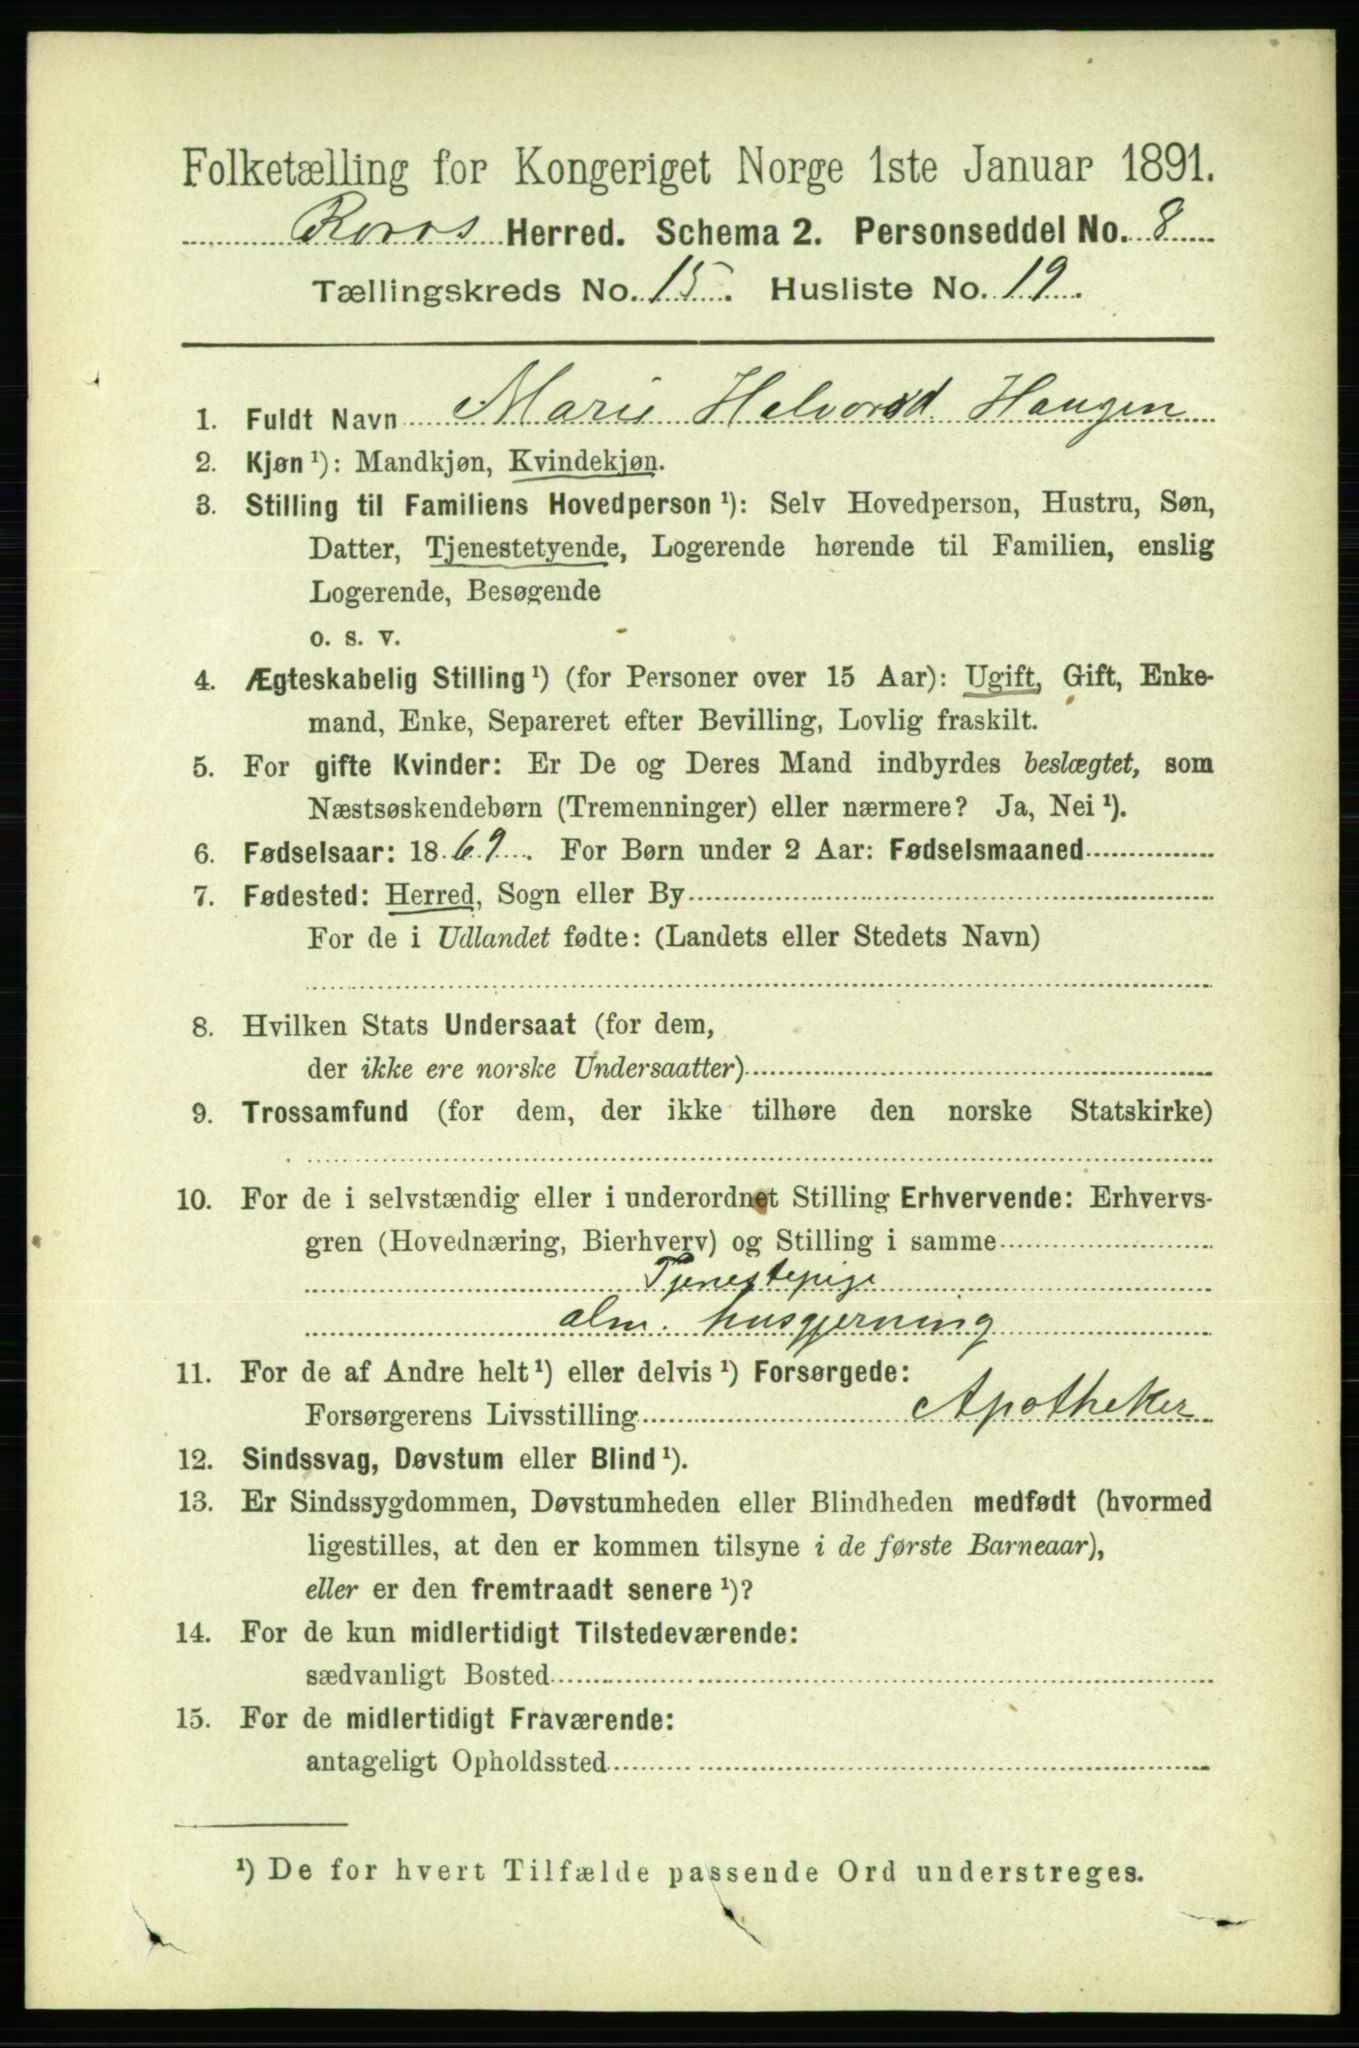 Folketælling for Kongeriget Norge 1ste Januar 1891.
Røros Herred. Schema 2. Personseddel No. 8
Tællingskreds No. 15. Husliste No. 19.
1. Fuldt Navn Marie Halvorsd. Haugen
2. Kjøn ¹): Mandkjøn, Kvindekjøn.
3. Stilling til Familiens Hovedperson ¹): Selv Hovedperson, Hustru, Søn,
Datter, Tjenestetyende, Logerende hørende til Familien, enslig
Logerende, Besøgende
o. s. v.
4. Ægteskabelig Stilling ¹) (for Personer over 15 Aar): Ugift, Gift, Enke-
mand, Enke, Separeret efter Bevilling, Lovlig fraskilt.
5. For gifte Kvinder: Er De og Deres Mand indbyrdes beslægtet, som
Næstsøskendebørn (Tremenninger) eller nærmere? Ja, Nei ¹).
6. Fødselsaar: 1869. For Børn under 2 Aar: Fødselsmaaned
7. Fødested: Herred, Sogn eller By
For de i Udlandet fødte: (Landets eller Stedets Navn)
8. Hvilken Stats Undersaat (for dem,
der ikke ere norske Undersaatter)
9. Trossamfund (for dem, der ikke tilhøre den norske Statskirke)
10. For de i selvstændig eller i underordnet Stilling Erhvervende: Erhvervs-
gren (Hovednæring, Bierhverv) og Stilling i samme
Tjenestepige
alm. husgjerning
11. For de af Andre helt ¹) eller delvis ¹) Forsørgede:
Forsørgerens Livsstilling Apotheker
12. Sindssvag, Døvstum eller Blind ¹).
13. Er Sindssygdommen, Døvstumheden eller Blindheden medfødt (hvormed
ligestilles, at den er kommen tilsyne i de første Barneaar),
eller er den fremtraadt senere ¹)?
14. For de kun midlertidigt Tilstedeværende:
sædvanligt Bosted
15. For de midlertidigt Fraværende:
antageligt Opholdssted
¹) De for hvert Tilfælde passende Ord understreges.